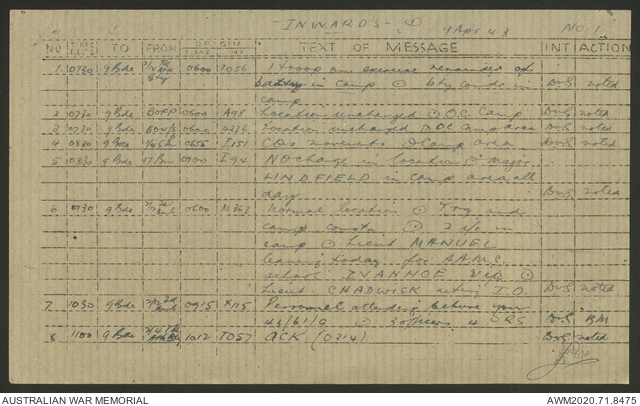 INWARDS - 1
9 Apr 43 NO. 1
NO TIME RECD TO FROM ORIGIN TIME NO TEXT OF MESSAGE INT ACTION
1 0730 9 Bde 0600 T056 1 troop on exercise remainder of
battery in camp ⊙ Bty comdr in noted
camp
2 0730 9 Bde BOFP 0600 A98 Location unchanged ⊙ O.C. Camp noted
3 0730 9 Bde 0600 4236 Location unchanged ⊙ OC Camp area noted
4 0830 9 Bde 0655 I151 COs movements ⊙ Camp area noted
5 0830 9 Bde 17 Bn 0900 I94 NO change in location ⊙ Major
LINDFIELD in camp area all
day. noted
6 0930 9 Bde 0600 M363 Normal location ⊙ Trg and
camp ⊙ 2 i/c in
camp ⊙ Lieut MANUEL
leaving today for A.A.M.C.
school IVANHOE Vic ⊙
Lieut. CHADWICK T.O. noted
7 1030 9 Bde 0915 X115 Personnel attending before you
43/61/9 ⊙ 3 officers 4 ORS BM
8 1100 9 Bde 1012 T057 ACK (0314) noted
AUSTRALIAN WAR MEMORIAL AWM2020.71.8475